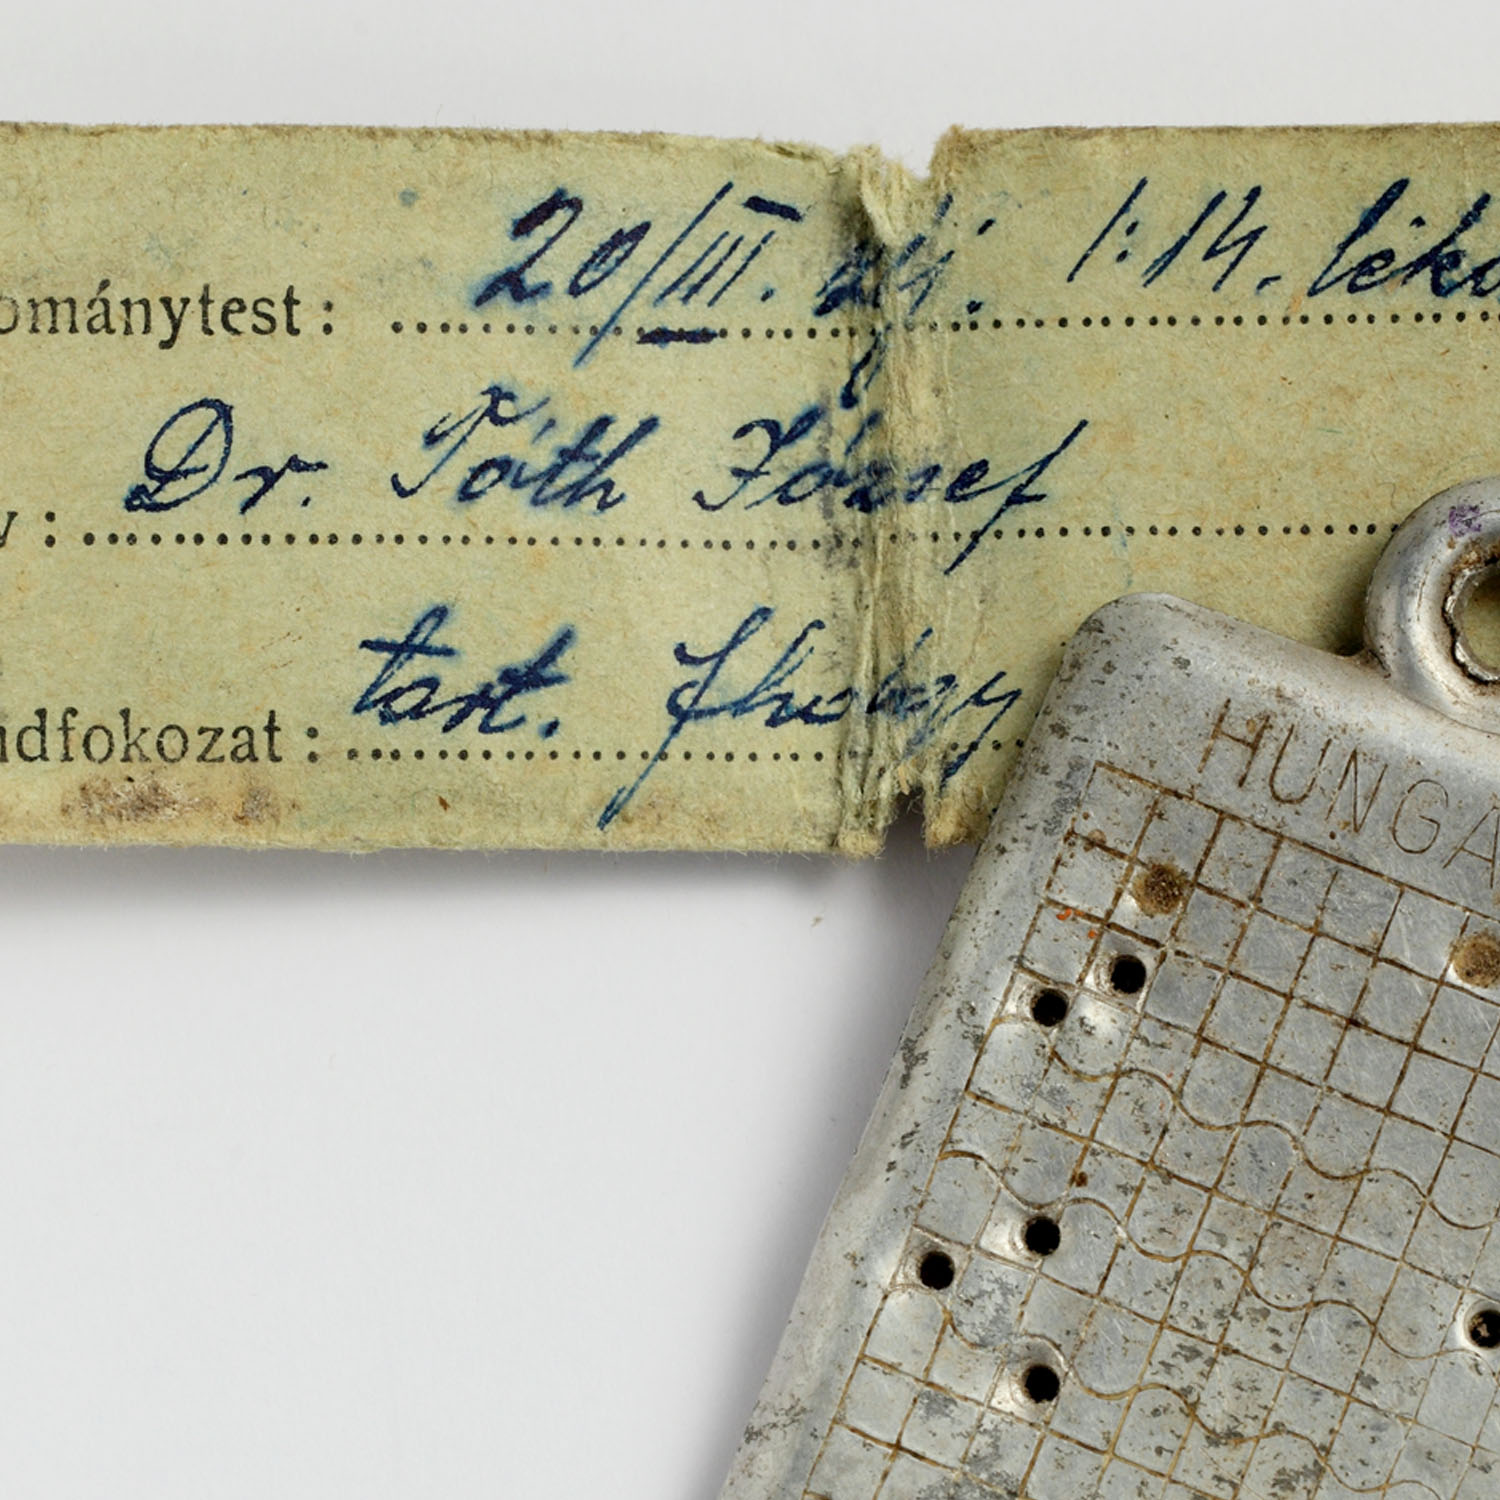 ománytest: 20/III. 1:14. léka
v: Dr. Tóth József
idfokozat: tart. fhdgy
HUNGA